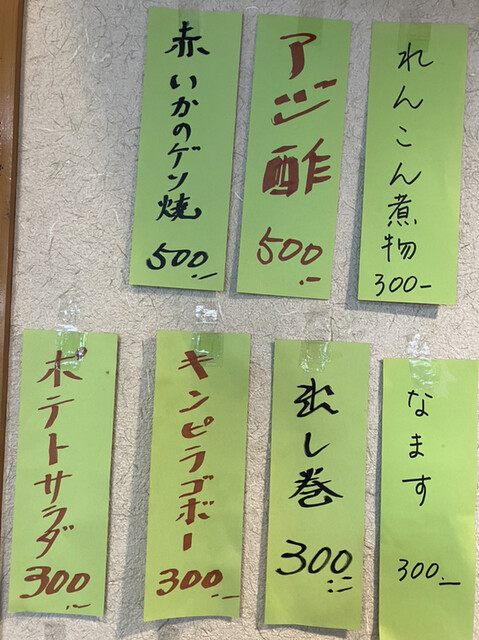 れんこん煮物
300-
アジ酢
500.-
赤いかのゲソ焼
500.-
なます
300.-
出し巻
300.-
キンピラゴボー
300.-
ポテトサラダ
300.-